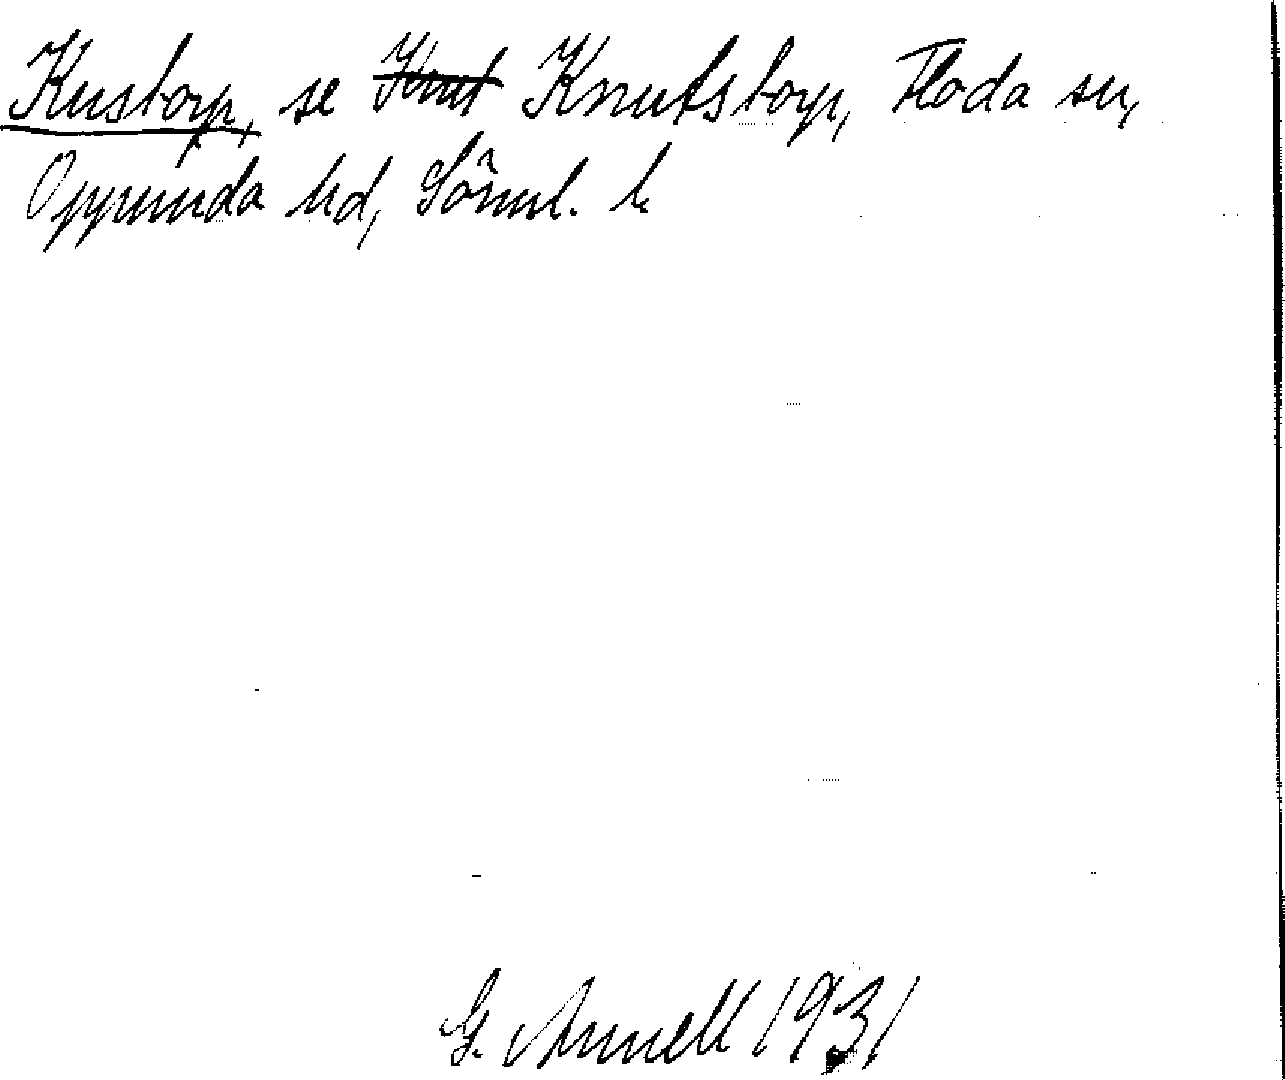 Kustorp, se Knut Knutstorp, Floda sn,
Oppunda hd, Sörml. l.
G. Annell 1931